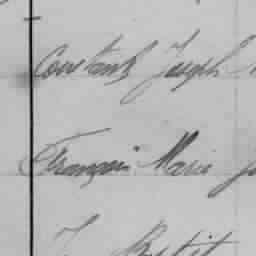 Constant Joseph
François Marie
Petit